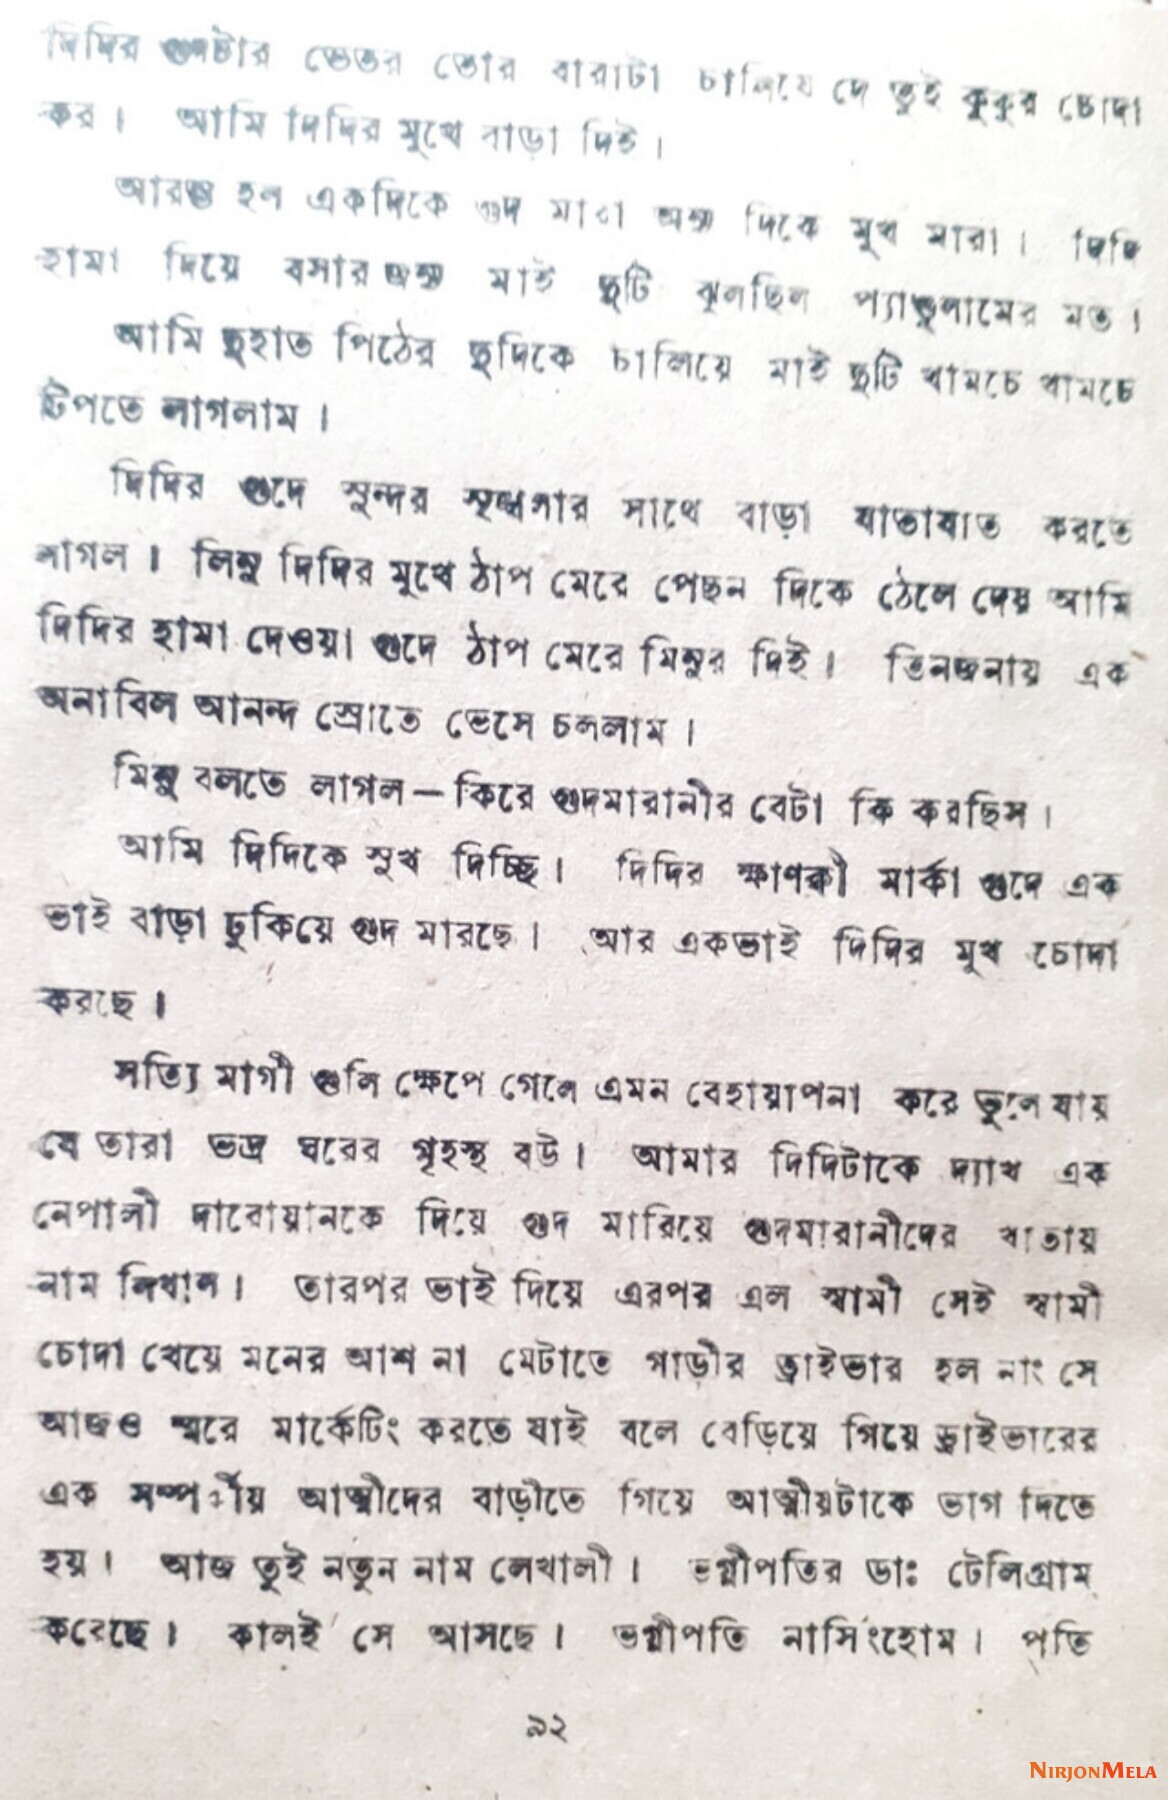 দিদির গুদটার ভেতর তোর বারাটা চালিয়ে দে তুই কুকুর চোদা
কর। আমি দিদির মুখে বাড়া দিই।
আরম্ভ হল একদিকে গুদ মারা অন্য দিকে মুখ মারা। দিদি
হামা দিয়ে বসার জন্য মাই দুটি ঝুলছিল প্যাণ্ডুলামের মত।
আমি দুহাত পিঠের দুদিকে চালিয়ে মাই দুটি খামচে খামচে
টিপতে লাগলাম।
দিদির গুদে সুন্দর সাথে বাড়া যাতায়াত করতে
লাগল। দিদির মুখে ঠাপ মেরে পেছন দিকে ঠেলে দেয় আমি
দিদির হামা দেওয়া গুদে ঠাপ মেরে মিনুর দিই। তিনজনায় এক
অনাবিল আনন্দ স্রোতে ভেসে চললাম।
মিনু বলতে লাগল — কিরে গুদমারানীর বেটা কি করছিস।
আমি দিদিকে সুখ দিচ্ছি। দিদির মার্কা গুদে এক
ভাই বাড়া ঢুকিয়ে গুদ মারছে। আর একভাই দিদির মুখ চোদা
করছে।
সত্যি মাগী গুলি ক্ষেপে গেলে এমন বেহায়াপনা করে ভুলে যায়
যে তারা ভদ্র ঘরের গৃহস্থ বউ। আমার দিদিটাকে দ্যাখ এক
নেপালী দারোয়ানকে দিয়ে গুদ মারিয়ে গুদমারানীদের খাতায়
নাম লিখাল। তারপর ভাই দিয়ে এরপর এল স্বামী সেই স্বামী
চোদা খেয়ে মনের আশ না মেটাতে গাড়ীর ড্রাইভার হল নাং সে
আজও মার্কেটিং করতে যাই বলে বেড়িয়ে গিয়ে ড্রাইভারের
এক আত্মীদের বাড়ীতে গিয়ে আত্মীয়টাকে ভাগ দিতে
হয়। আজ তুই নতুন নাম লেখালী। ভগ্নীপতির ডাঃ টেলিগ্রাম
করেছে। কালই সে আসছে। ভগ্নীপতি নার্সিংহোম। পতি
৯২
NIRJONMELA